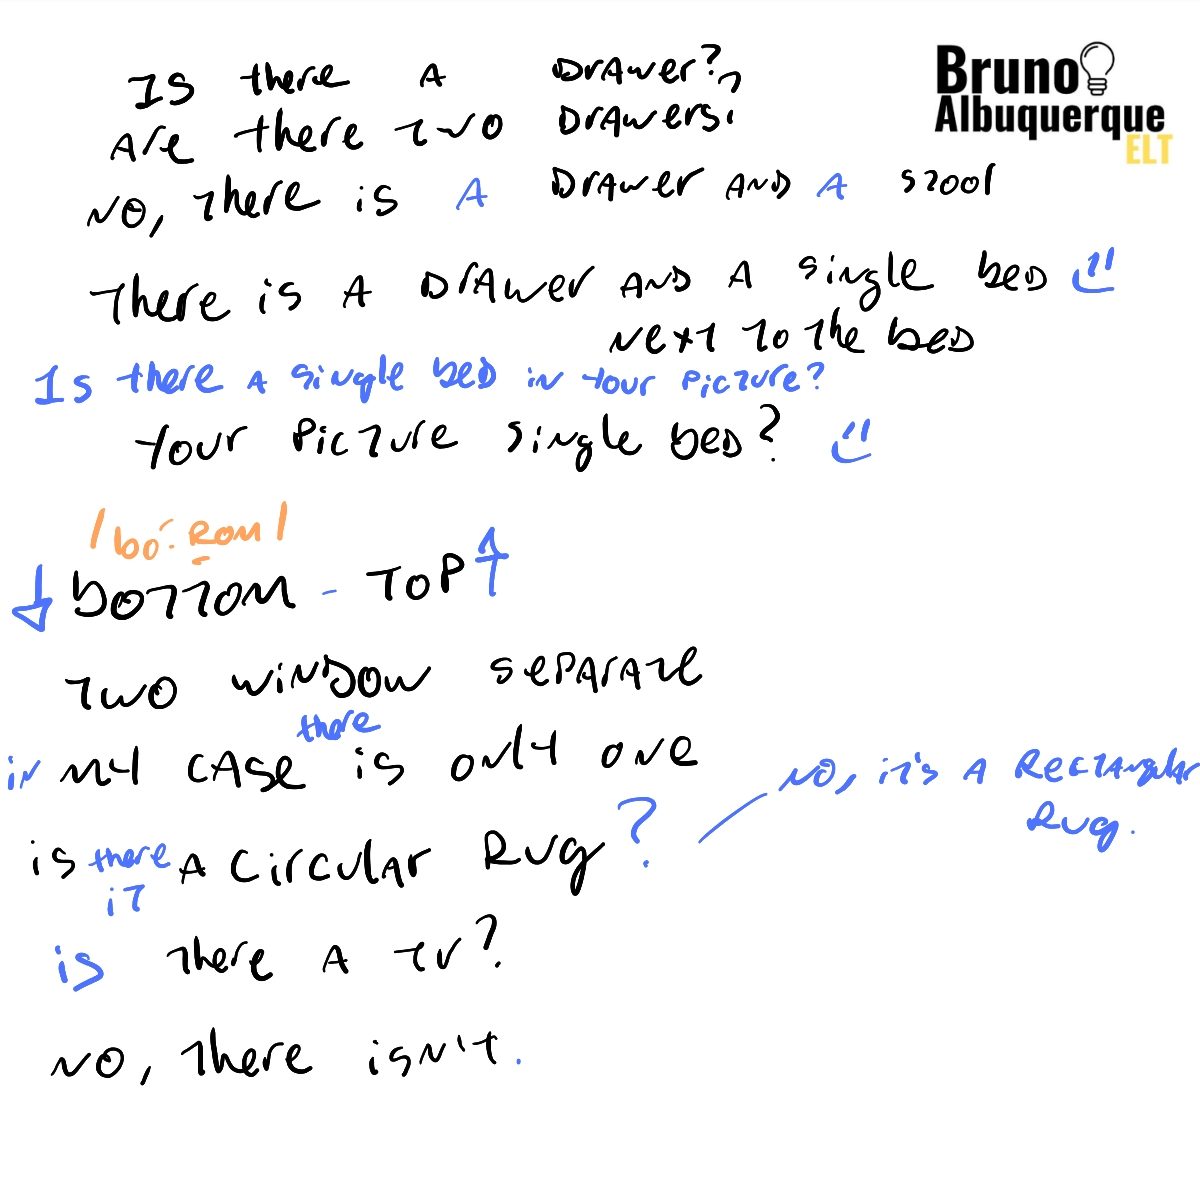 Bruno
Albuquerque
ELT
Is there A Drawer?,
Are there two Drawers.
No, There is A Drawer AND A stool
There is A Drawer AND A single beD
Next to the beD
Is there A single beD in your Picture?
Your Picture single beD?
/bó:Rom/
bottom - ToP
two winDow sePArate
there
in My cAse is only one
No, it's A RectAngulAr
Rug.
is there A circulAr Rug?
it
is There A tv?
No, There isn't.